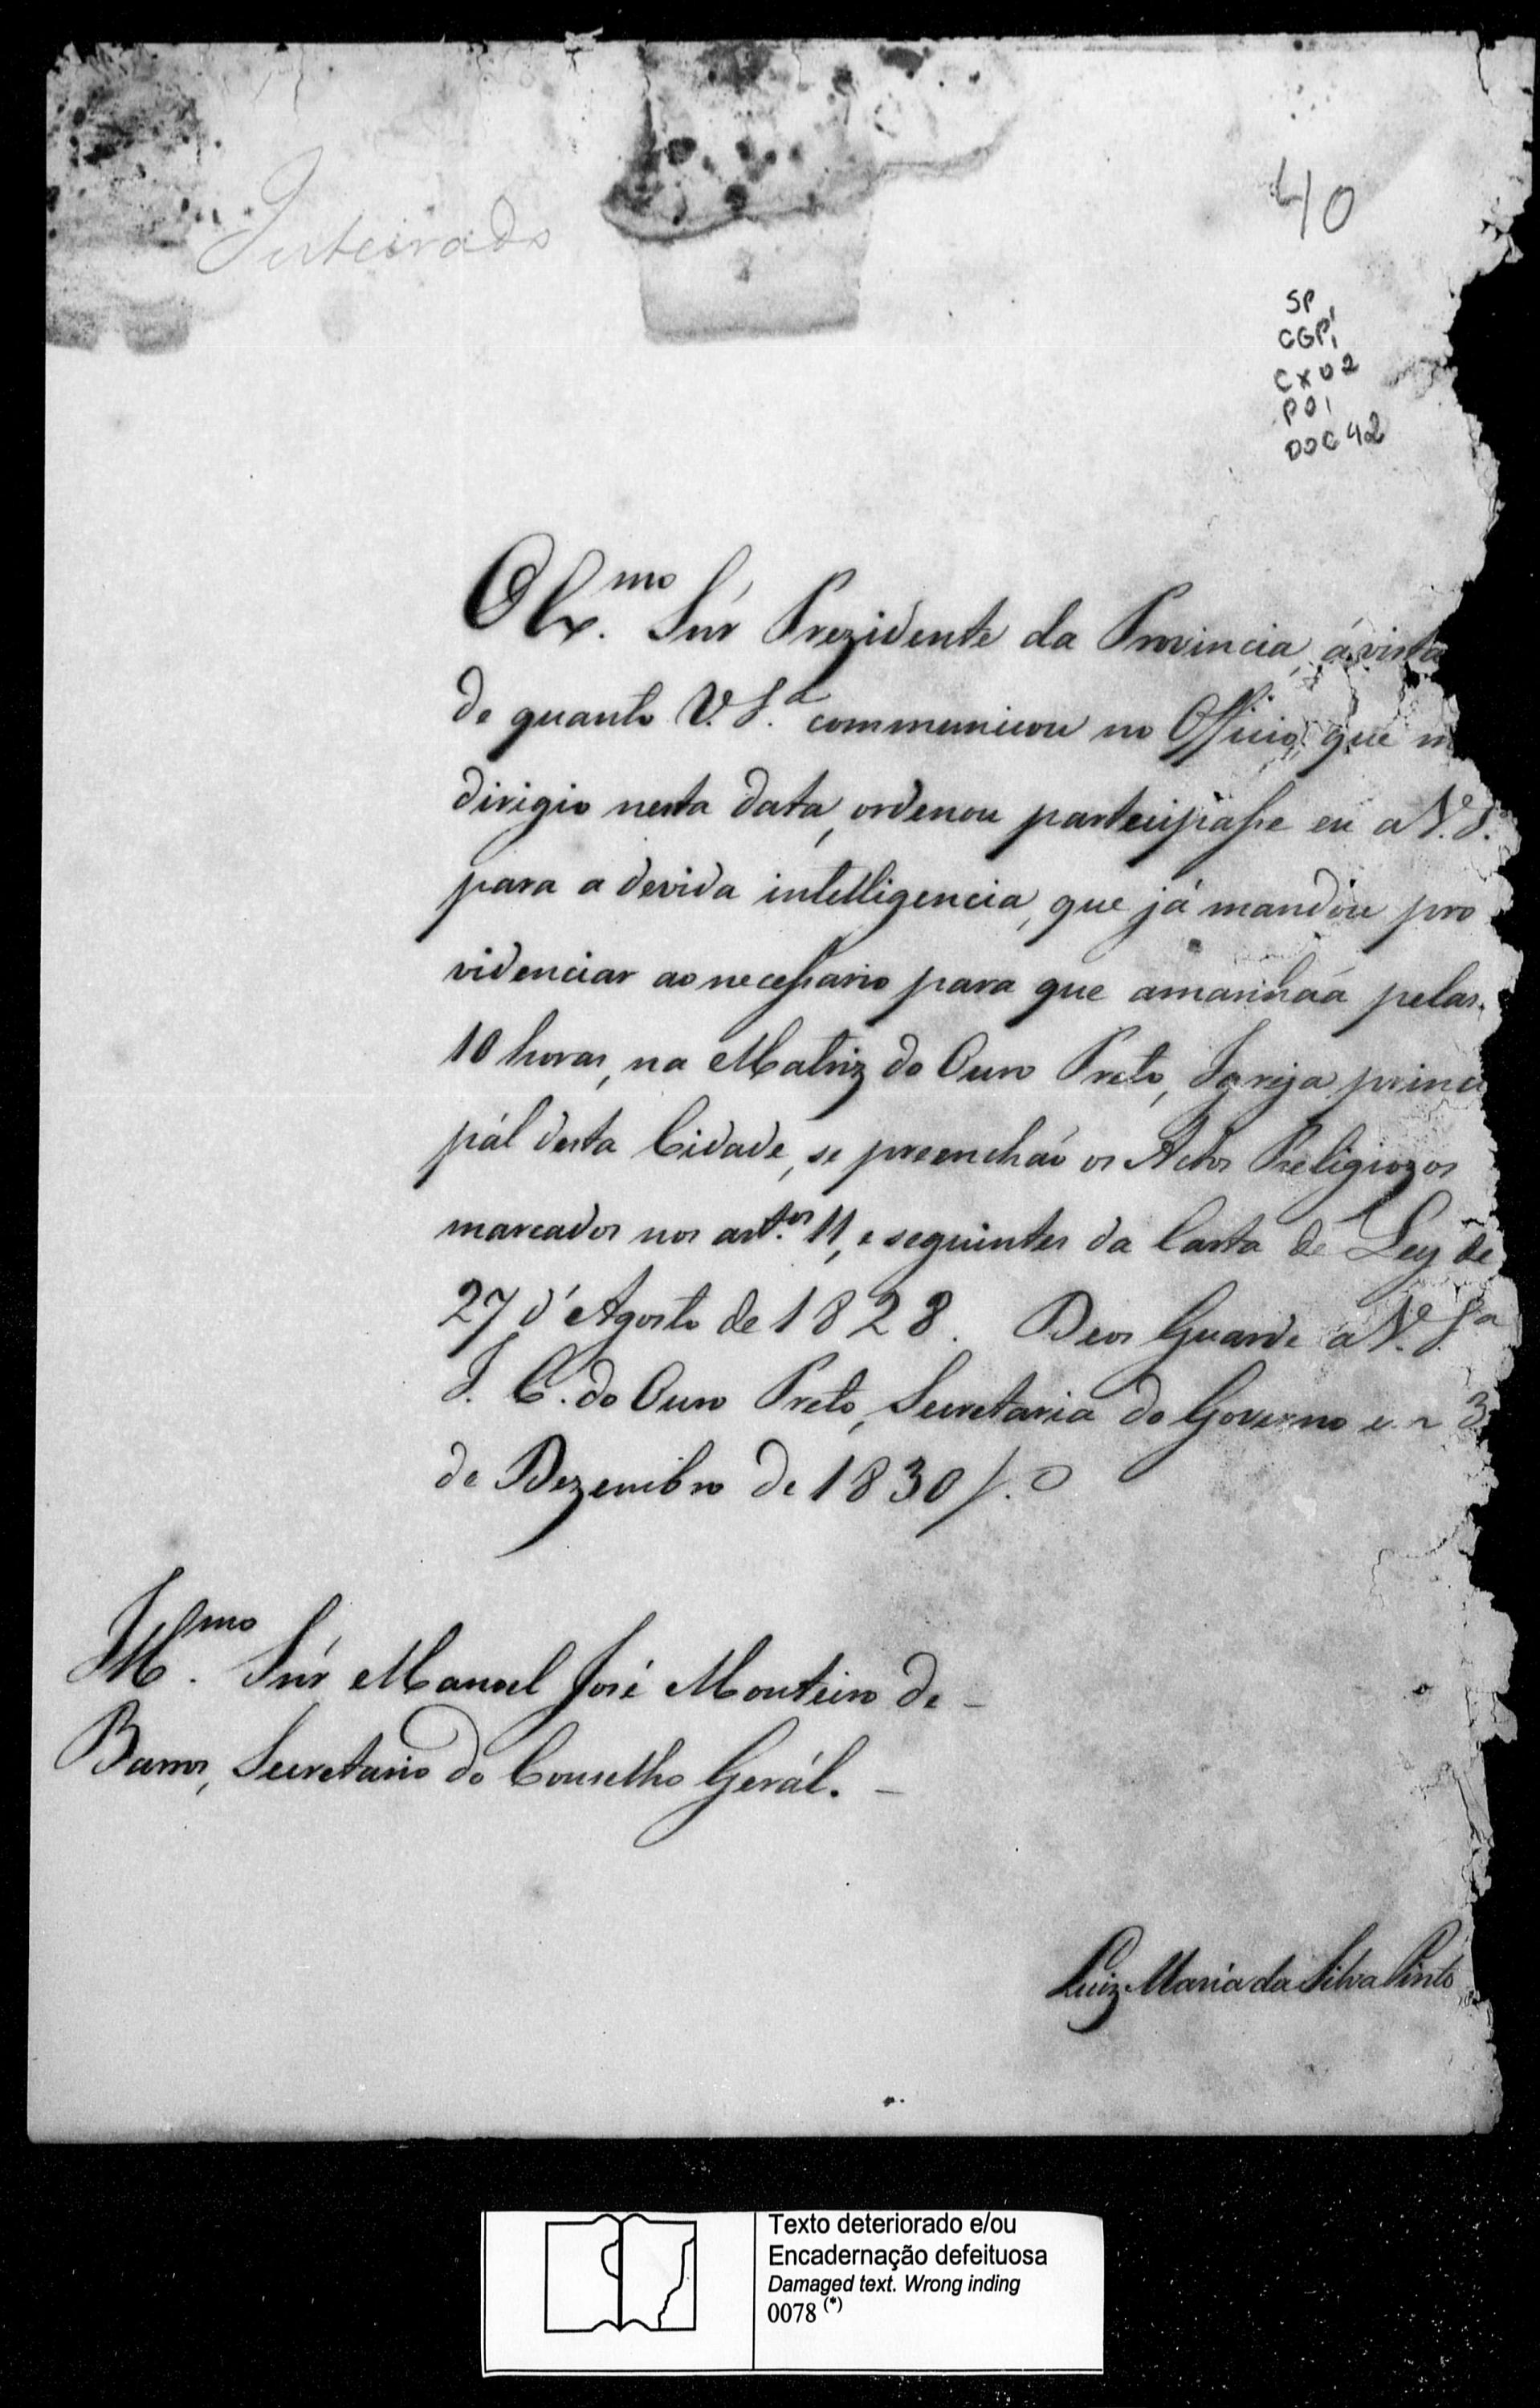 Inteirado
40
SP
CGP1
CX02
P01
DOC 42
O Ex.mo Sñr Prezidente da Provincia, á vista
de quanto V. S.a communicou no Officio, que m
dirigio nesta data, ordenou partecipasse eu a V. S.a
para a devida intelligencia, que já mandou pro
videnciar ao necessario para que amanháa pelas
10 horas, na Matriz do Ouro Preto, Igreja princi
pál desta Cidade, se preencháo os Actos Religiozos
marcados nos art.os 11, e seguintes da Carta de Ley de
27 d'Agosto de 1828. Deos Guarde a V. S.a
I. C. do Ouro Preto, Secretaria do Governo em 3
de Dezembro de 1830 /.
Ill.mo Sñr Manoel José Monteiro de -
Barros, Secretario do Conselho Gerál. -
Luiz Maria da Silva Pinto
Texto deteriorado e/ou
Encadernação defeituosa
Damaged text. Wrong inding
0078 (*)